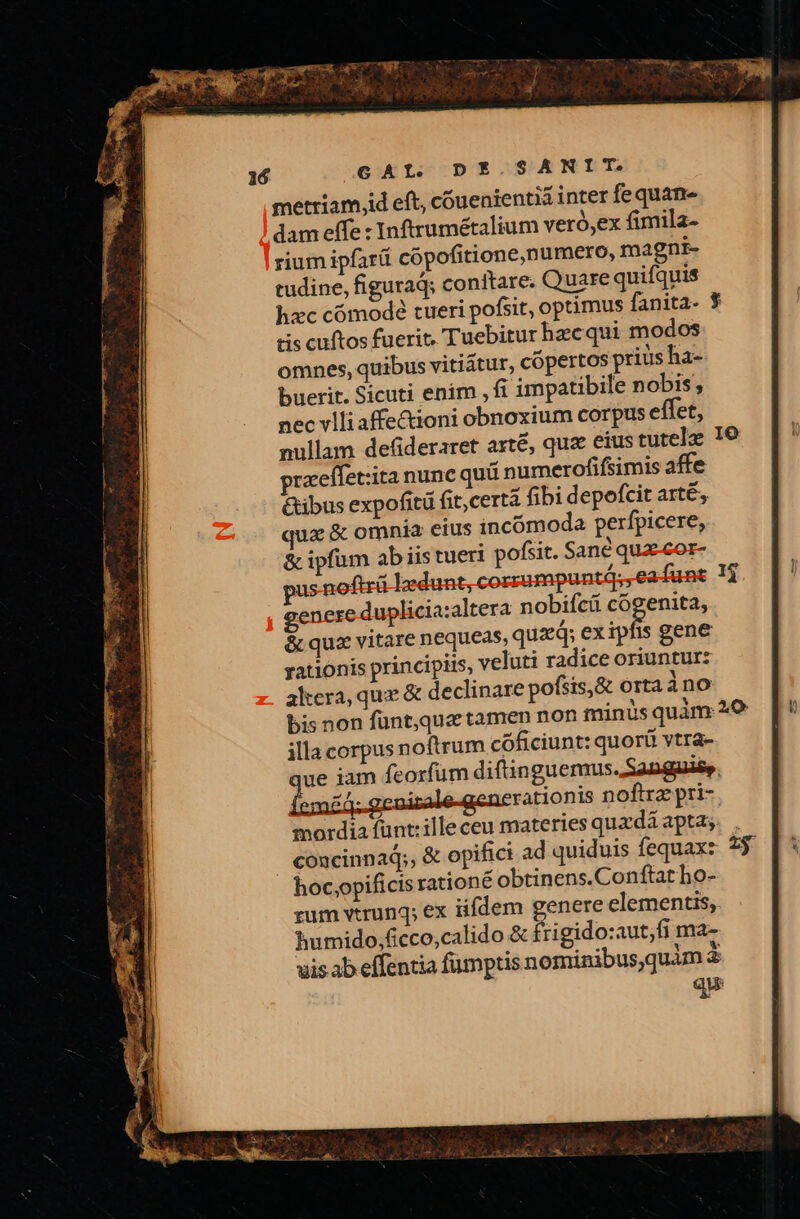 16 GAL. DE SANIT.
metriam,id eſt, cōuenientiā inter ſe quan-
dam eſſe: Inſtrumētalium verò,ex ſimila-
rium ipſarū cōpoſitione,numero, magni-
tudine, figuraq́; conſtare. Quare quiſquis
hæc cōmodè tueri poſsit, optimus ſanita- 5
tis cuſtos fuerit. Tuebitur hæc qui modos
omnes, quibus vitiātur, cōpertos priùs ha-
buerit. Sicuti enim, ſi impatibile nobis,
nec vlli affectioni obnoxium corpus eſſet,
nullam deſideraret artē, quæ eius tutelæ 10
præeſſet:ita nunc quū numeroſiſsimis affe
ctibus expoſitū ſit,certā ſibi depoſcit artē,
2. quæ & omnia eius incōmoda perſpicere,
& ipſum ab iis tueri poſsit. Sanè quæ cor-
pus noſtrū lædunt, corrumpuntq́;, ea ſunt 15
1 genere duplicia:altera nobiſcū cōgenita,
& quæ vitare nequeas, quæq́; ex ipſis gene
rationis principiis, veluti radice oriuntur:
2. altera, quæ & declinare poſsis,& orta à no
bis non ſunt,quæ tamen non minùs quàm 20
illa corpus noſtrum cōficiunt: quorū vtra-
que iam ſeorſum diſtinguemus. Sanguis,
ſemēq́; genitale generationis noſtræ pri-
mordia ſunt: ille ceu materies quædā apta,
concinnaq́;, & opifici ad quiduis ſequax: 25
hoc,opificis rationē obtinens.Conſtat ho-
rum vtrunq; ex iiſdem genere elementis,
humido,ſicco,calido & frigido:aut,ſi ma-
uis ab eſſentia ſumptis nominibus,quàm à
qu